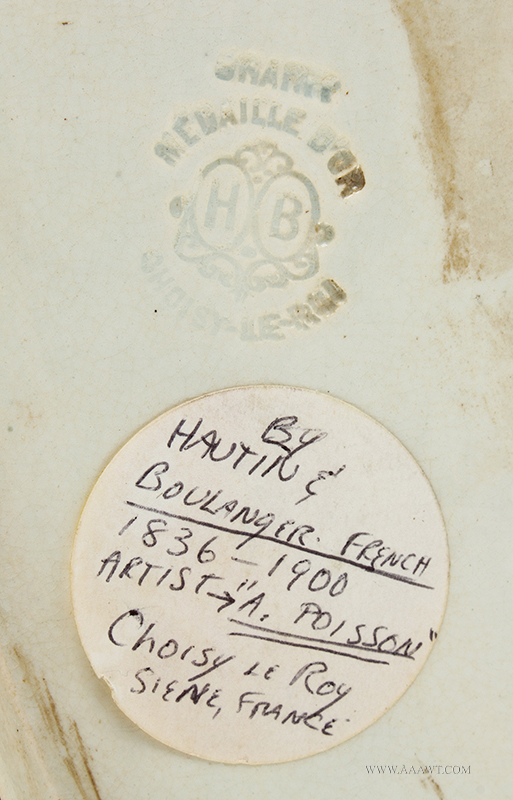 GRANIT
MEDAILLE D'OR
H B
CHOISY-LE-ROI
By
HAUTIN &
BOULANGER. FRENCH
1836 – 1900
ARTIST → "A. POISSON"
Choisy LE Roy
SIENE, FRANCE
WWW.AAAWT.COM